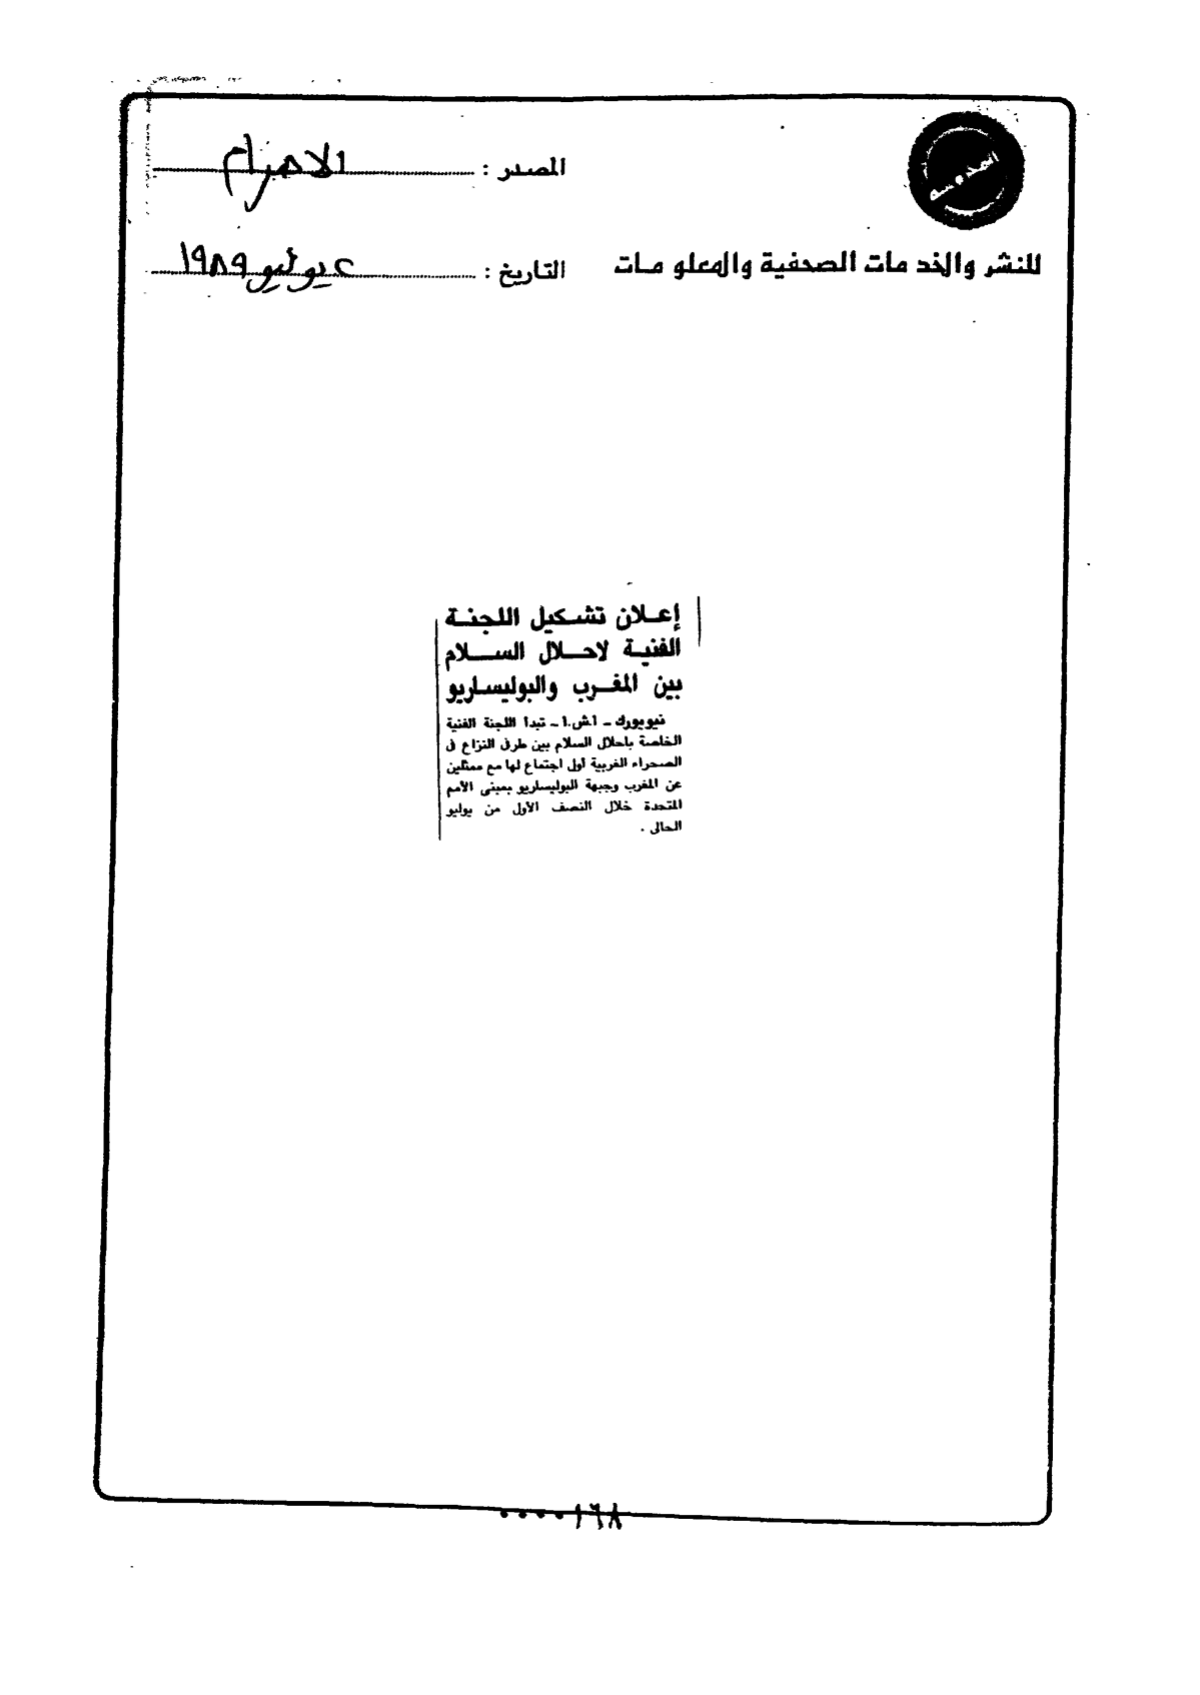 المصدر : الاهرام
للنشر والخدمات الصحفية والمعلومات
التاريخ : ٢ يوليو ١٩٨٩
إعلان تشكيل اللجنة
الفنية لاحلال السلام
بين المغرب والبوليساريو
نيويورك - أ.ش.ا - تبدأ اللجنة الفنية
الخاصة باحلال السلام بين طرفى النزاع فى
الصحراء الغربية أول اجتماع لها مع ممثلين
عن المغرب وجبهة البوليساريو بمبنى الأمم
المتحدة خلال النصف الأول من يوليو
الحالى .
٠٠٠٠١٦٨